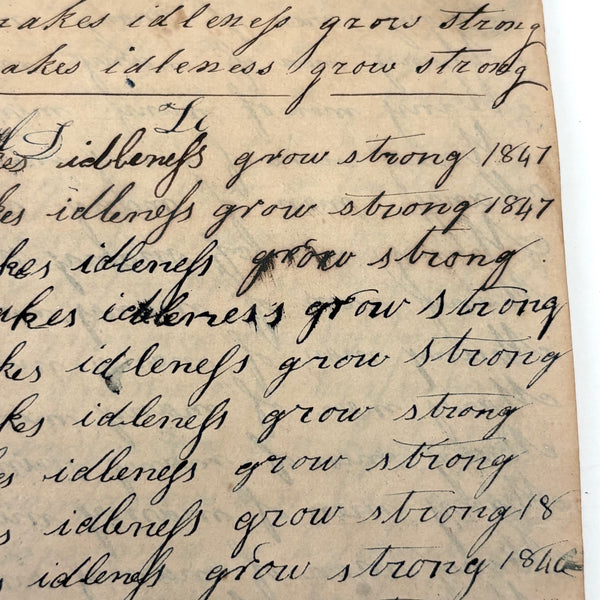 makes idleneſs grow strong
akes idleness grow strong
kes idleneſs grow strong 1847
kes idleneſs grow strong 1847
kes idleneſs grow strong
akes idleness grow strong
kes idleneſs grow strong
kes idleneſs grow strong
es idleneſs grow strong
s idleneſs grow strong 18
s idleneſs grow strong 1846